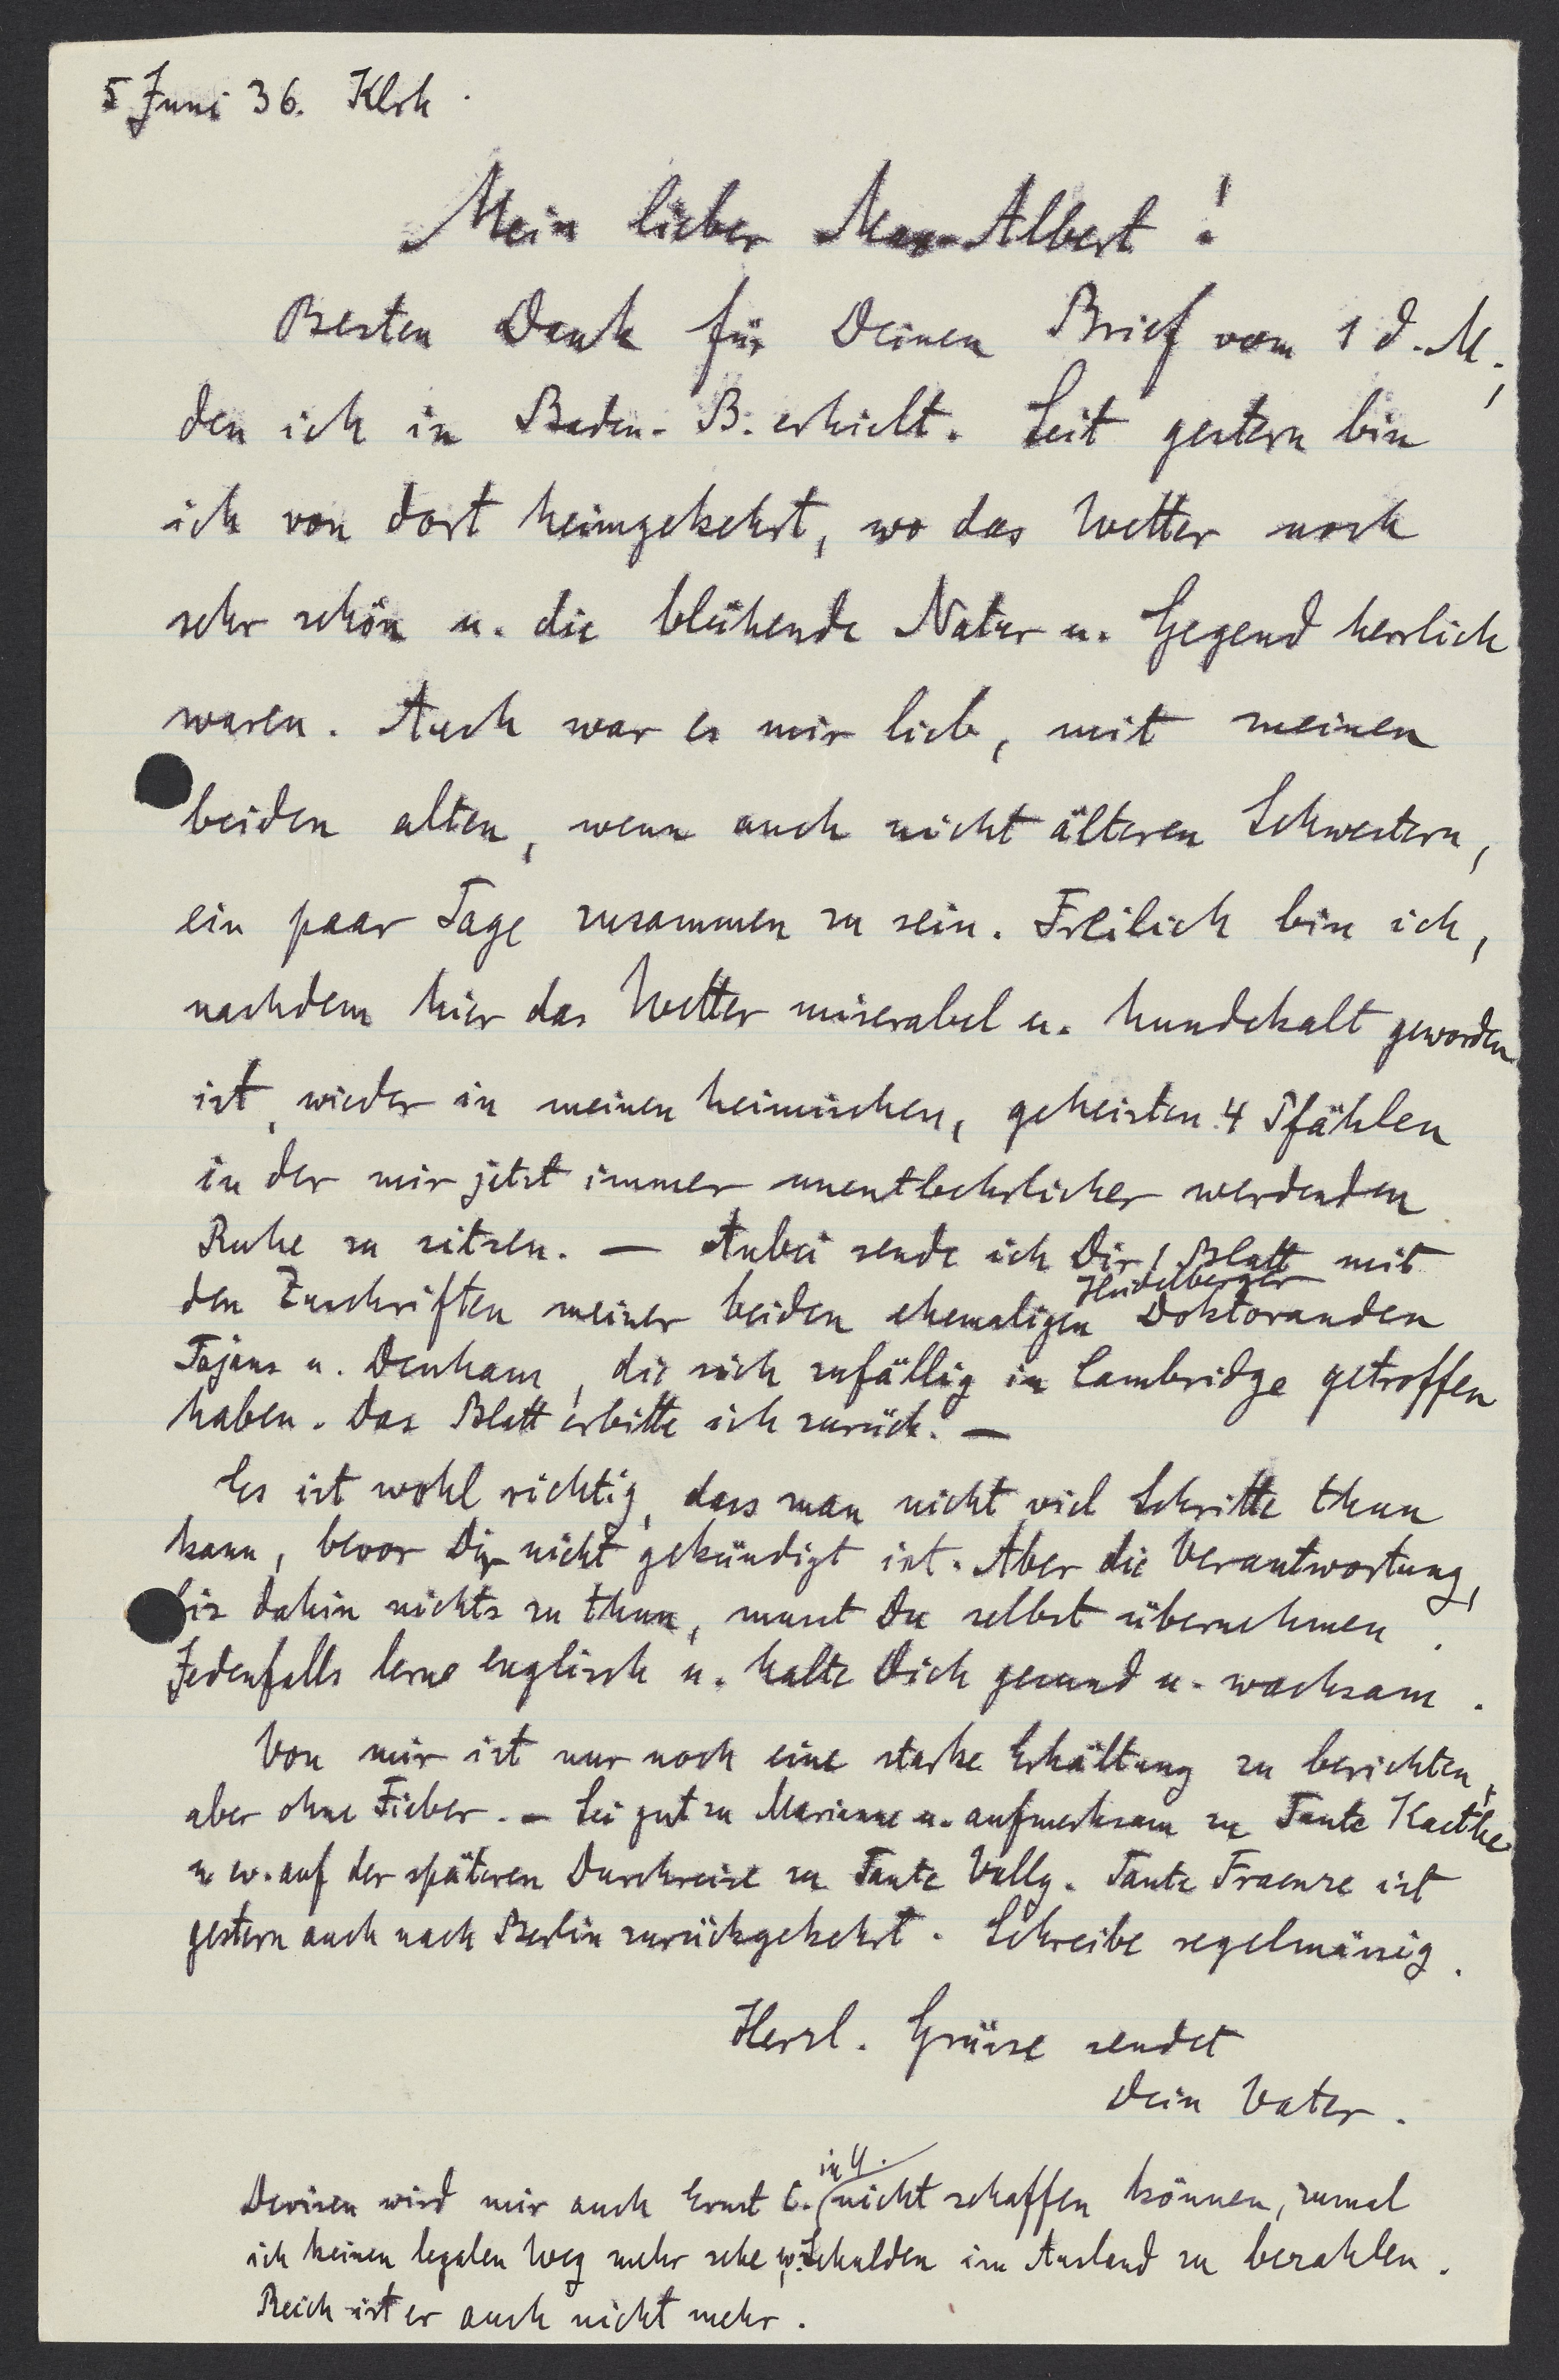 5 Juni 36. Klrh.
Mein lieber Max-Albert!
Besten Dank für Deinen Brief vom 1 d. M.,
den ich in Baden-B. erhielt. Seit gestern bin
ich von dort heimgekehrt, wo das Wetter noch
sehr schön u. die blühende Natur u. Gegend herrlich
waren. Auch war es mir lieb, mit meinen
beiden alten, wenn auch nicht älteren Schwestern,
ein paar Tage zusammen zu sein. Freilich bin ich,
nachdem hier das Wetter miserabel u. hundekalt geworden
ist, wieder in meinen heimischen, geheizten 4 Pfählen
in der mir jetzt immer unentbehrlicher werdenden
Ruhe zu sitzen. — Anbei sende ich Dir 1 Blatt mit
den Zuschriften meiner beiden ehemaligen Heidelberger Doktoranden
Fajans u. Denham, die sich zufällig in Cambridge getroffen
haben. Das Blatt erbitte ich zurück. —
Es ist wohl richtig, dass man nicht viel Schritte thun
kann, bevor Dir nicht gekündigt ist. Aber die Verantwortung,
bis dahin nichts zu thun, musst Du selbst übernehmen.
Jedenfalls lerne englisch u. halte Dich gesund u. wachsam.
Von mir ist nur noch eine starke Erkältung zu berichten,
aber ohne Fieber. — Sei gut zu Marianne u. aufmerksam zu Tante Kaethe
u. ev. auf der späteren Durchreise zu Tante Vally. Tante Fraenze ist
gestern auch nach Berlin zurückgekehrt. Schreibe regelmässig.
Herzl. Grüsse sendet
Dein Vater.
Devisen wird mir auch Ernst C. in U. nicht schaffen können, zumal
ich keinen legalen Weg mehr sehe, Schulden im Ausland zu bezahlen.
Reich ist er auch nicht mehr.